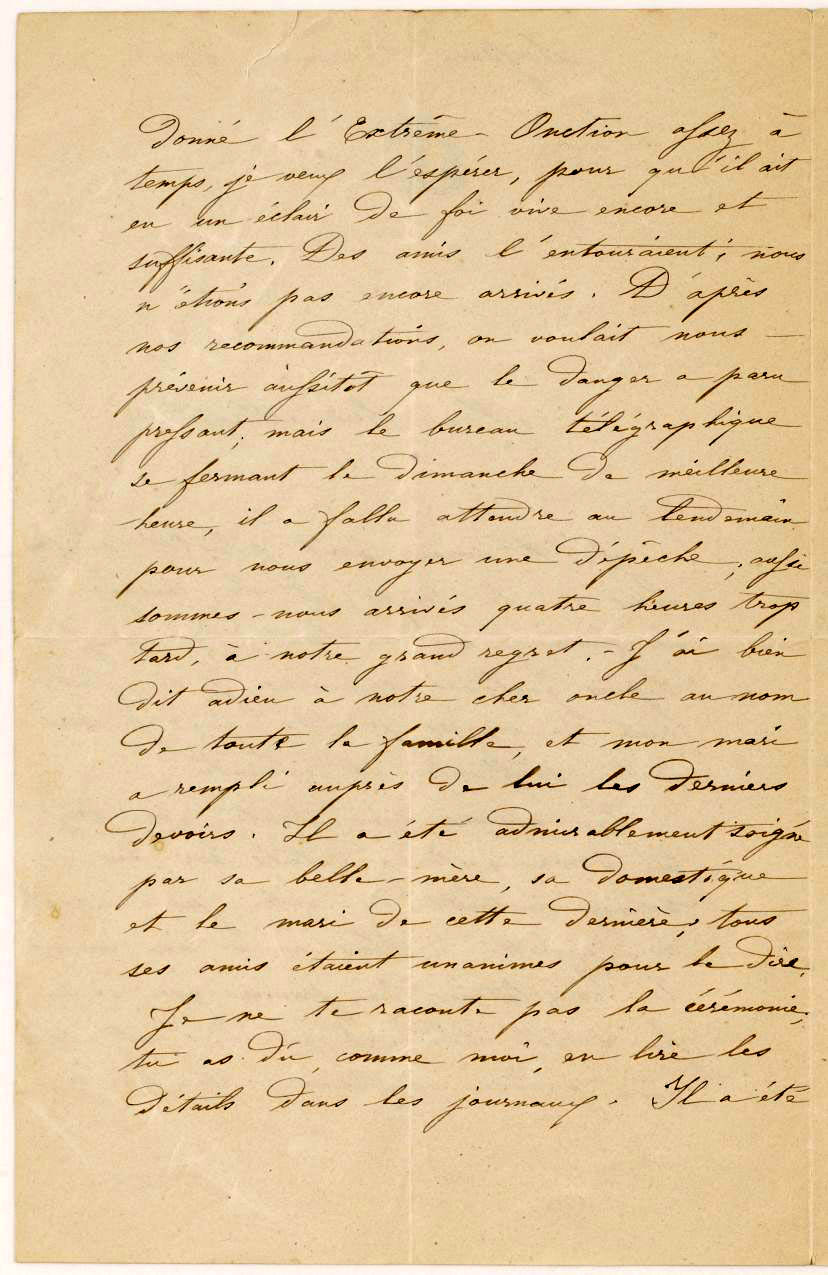 donné l'Extrême-Onction assez à
temps, je veux l'espérer, pour qu'il ait
eu un éclair de foi vive encore et
suffisante. Des amis l'entouraient; nous
n'étions pas encore arrivés. D'après
nos recommandations, on voulait nous —
prévenir aussitôt que le danger a paru
pressant; mais le bureau télégraphique
se fermant le dimanche de meilleure
heure, il a fallu attendre au lendemain
pour nous envoyer une dépêche; aussi
sommes-nous arrivés quatre heures trop
tard, à notre grand regret. - J'ai bien
dit adieu à notre cher oncle au nom
de toute la famille, et mon mari
a rempli auprès de lui les derniers
devoirs. Il a été admirablement soigné
par sa belle-mère, sa domestique
et le mari de cette dernière; tous
ses amis étaient unanimes pour le dire.
Je ne te raconte pas la cérémonie;
tu as dû, comme moi, en lire les
détails dans les journaux. Il a été